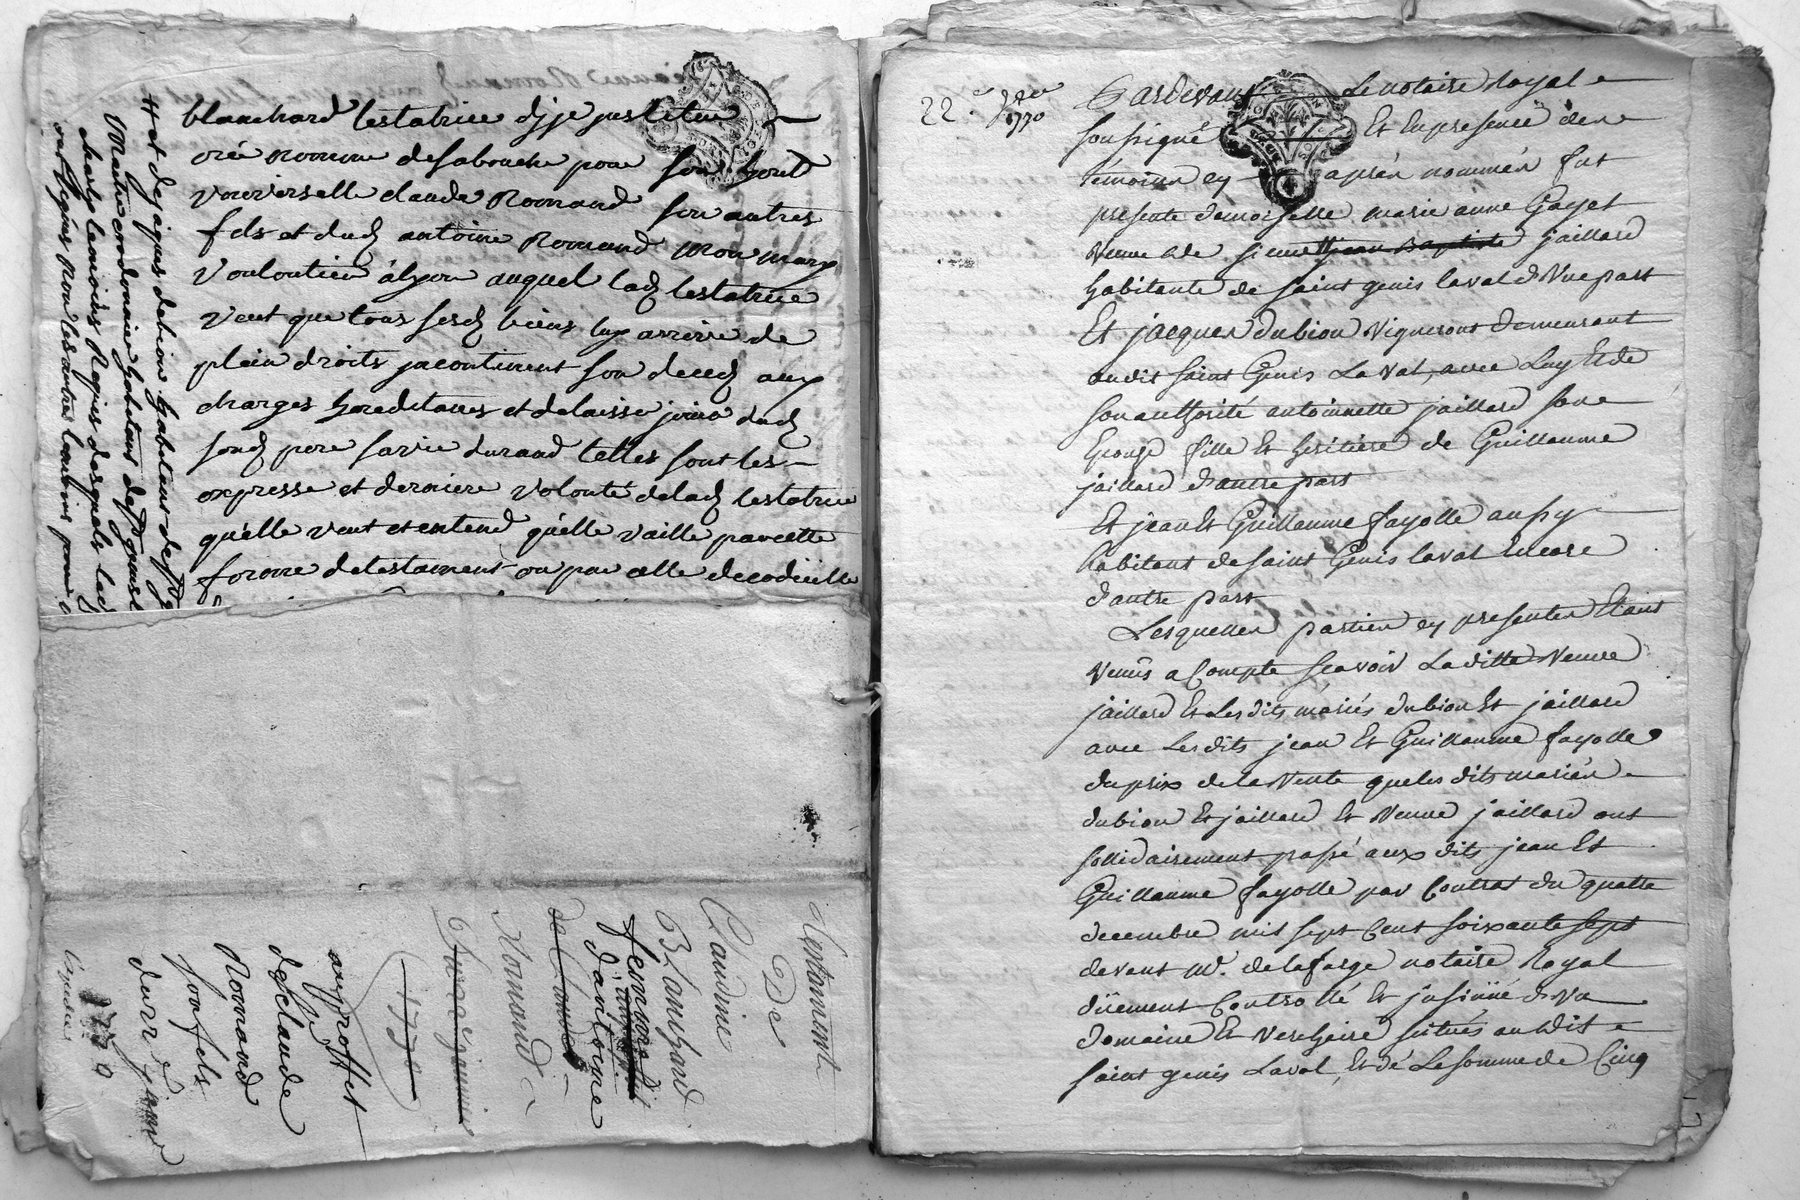 blanchard testatrice
créé nomme de sa bouche pour son
universelle claude Romand son autres
fils et dud antoine Romand mon mary
à lyon auquel lad testatrice
veut que tous sesd biens luy arrive de
plein droits son deced aux
charges hereditaires et delaisse jouir dud
sond pere sa vie durand telles sont les
expresse et derniere volonté delad testatrice
qu'elle veut et entend qu'elle vaille par cette
forme de testament ou par celle de codicille
Maitre cordonnier habitans de
Testament
De
Claudine
Blanchard
femme
d'antoine
Romand
1770
au proffit
de Claude
Romand
son fils
22e
1770
Pardevant Le notaire Royal
soussigné Et En presence de
témoins ey aprés nommés fut
presente demoiselle marie anne Gayet
veuve de sieur jean Baptiste jaillard
habitante de saint genis laval d'Vne part
Et jacques dubion Vigneront demeurant
audit saint Genis Laval, avec Luy Et de
son authorité antoinnette jaillard son
Epouse fille Et heritiere de Guillaume
jaillard d'autre part
Et jean Et Guillaume fayolle aussy
habitant de saint Genis laval Encore
d'autre part
Lesquelles parties ey presentes Etant
venüs a Compte sçavoir Laditte veuve
jaillard Et Lesdits mariés dubion Et jaillard
avec Lesdits jean Et Guillaume fayolle
du prix de la Vente que lesdits mariés
dubion Et jaillard Et veuve jaillard ont
sollidairement passé auxdits jean Et
Guillaume fayolle par Contrat du quatre
decembre mil sept Cent soixante sept
devant me. delafarge notaire Royal
düement Controllé Et jnsinüé d'Vn
domaine Et Vercheire scitués audit
saint genis Laval, Et de La somme de Cinq